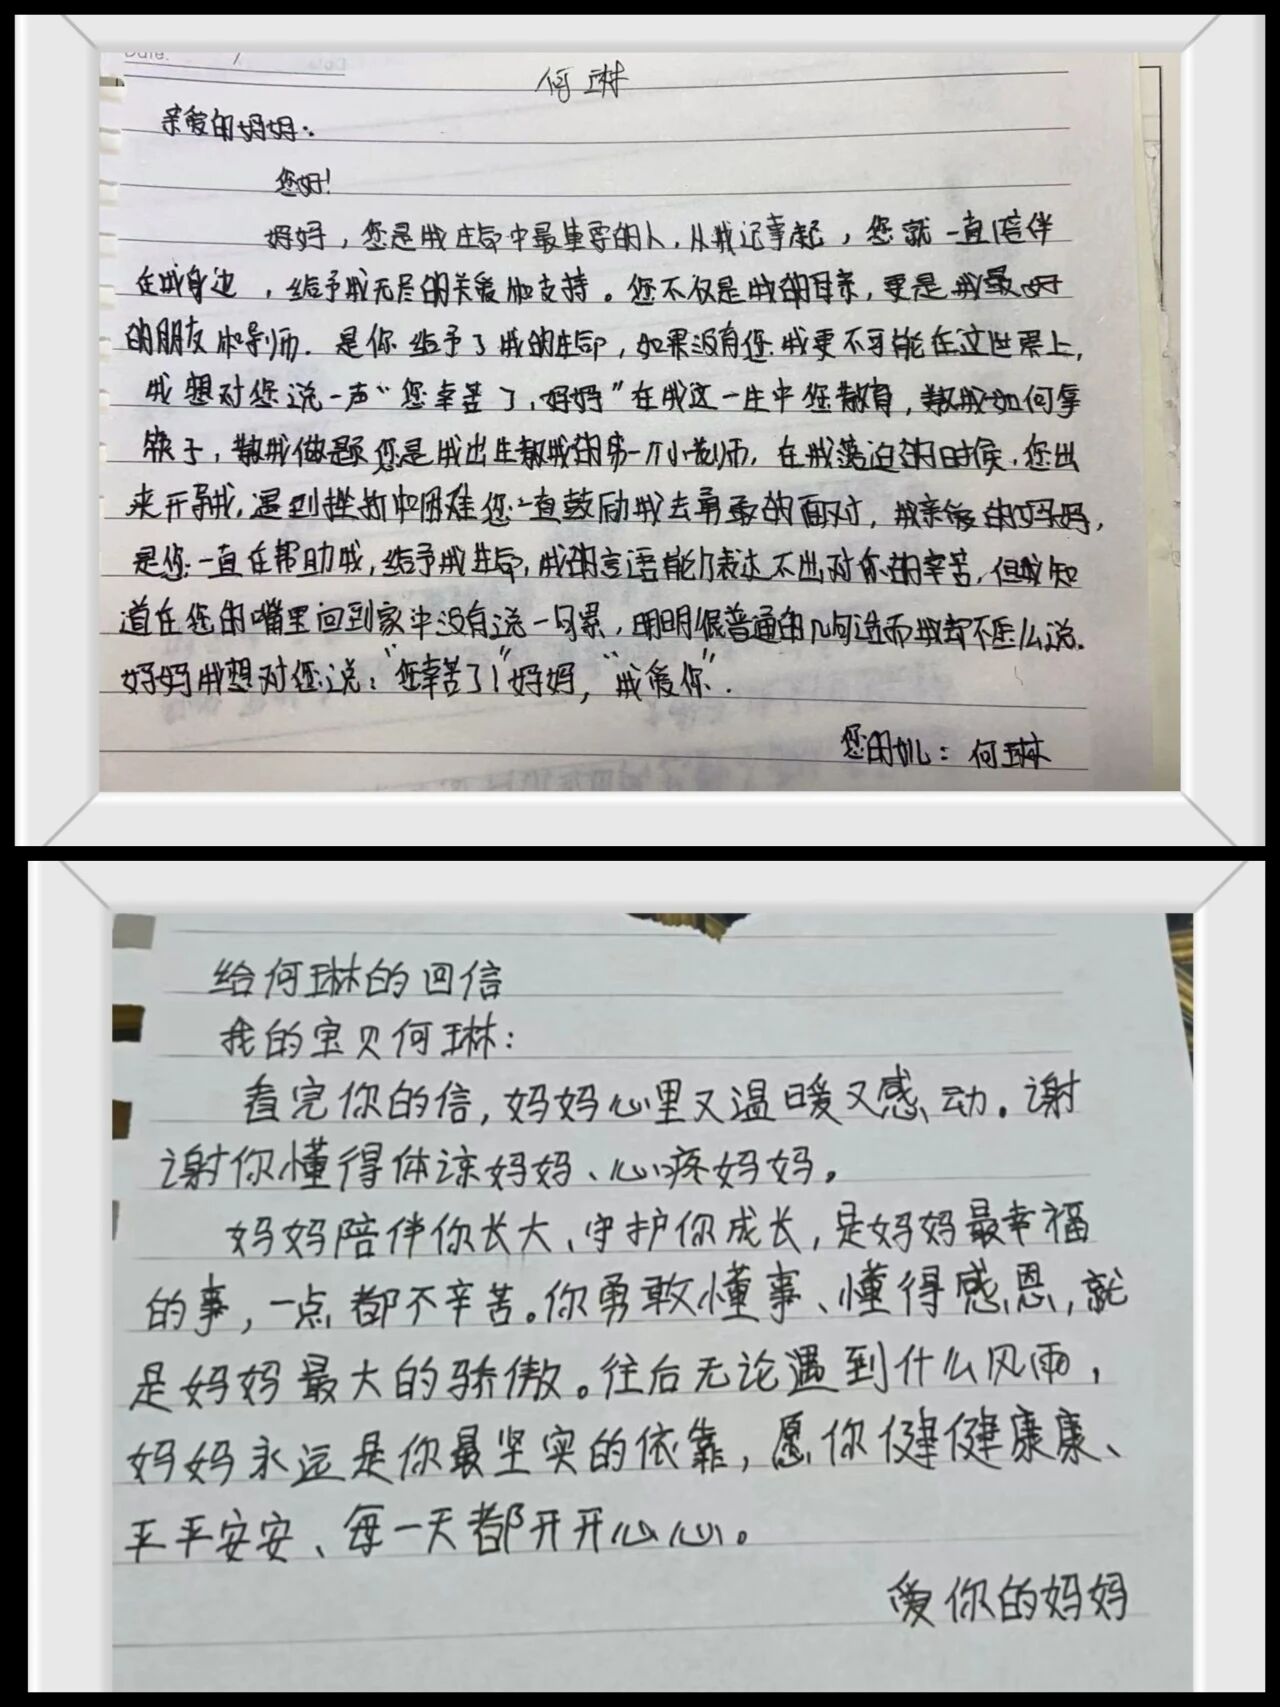 Date:
何琳
亲爱的妈妈:
您好!
妈妈,您是我生命中最重要的人,从我记事起,您就一直陪伴
在我身边,给予我无尽的关爱和支持。您不仅是我的母亲,更是我最好
的朋友和导师.是你给予了我的生命,如果没有您.我更不可能在这世界上,
我想对您说一声“您幸苦了,妈妈”在我这一生中您教育,教我如何拿
筷子,教我做题,您是我出生教我的第一个小老师,在我落迫的时候,您出
来开导我,遇到挫折和困难您一直鼓励我去勇敢的面对,我亲爱的妈妈,
是您一直在帮助我,给予我生命,我的言语能力表达不出对你的辛苦,但我知
道在您的嘴里回到家中没有说一句累,明明很普通的几句话而我却不怎么说.
妈妈我想对您说:“您幸苦了!”妈妈,“我爱你”.
您的女儿:何琳
给何琳的回信
我的宝贝何琳:
看完你的信,妈妈心里又温暖又感动。谢
谢你懂得体谅妈妈、心疼妈妈。
妈妈陪伴你长大、守护你成长,是妈妈最幸福
的事,一点都不辛苦。你勇敢懂事、懂得感恩,就
是妈妈最大的骄傲。往后无论遇到什么风雨,
妈妈永远是你最坚实的依靠,愿你健健康康、
平平安安、每一天都开开心心。
爱你的妈妈